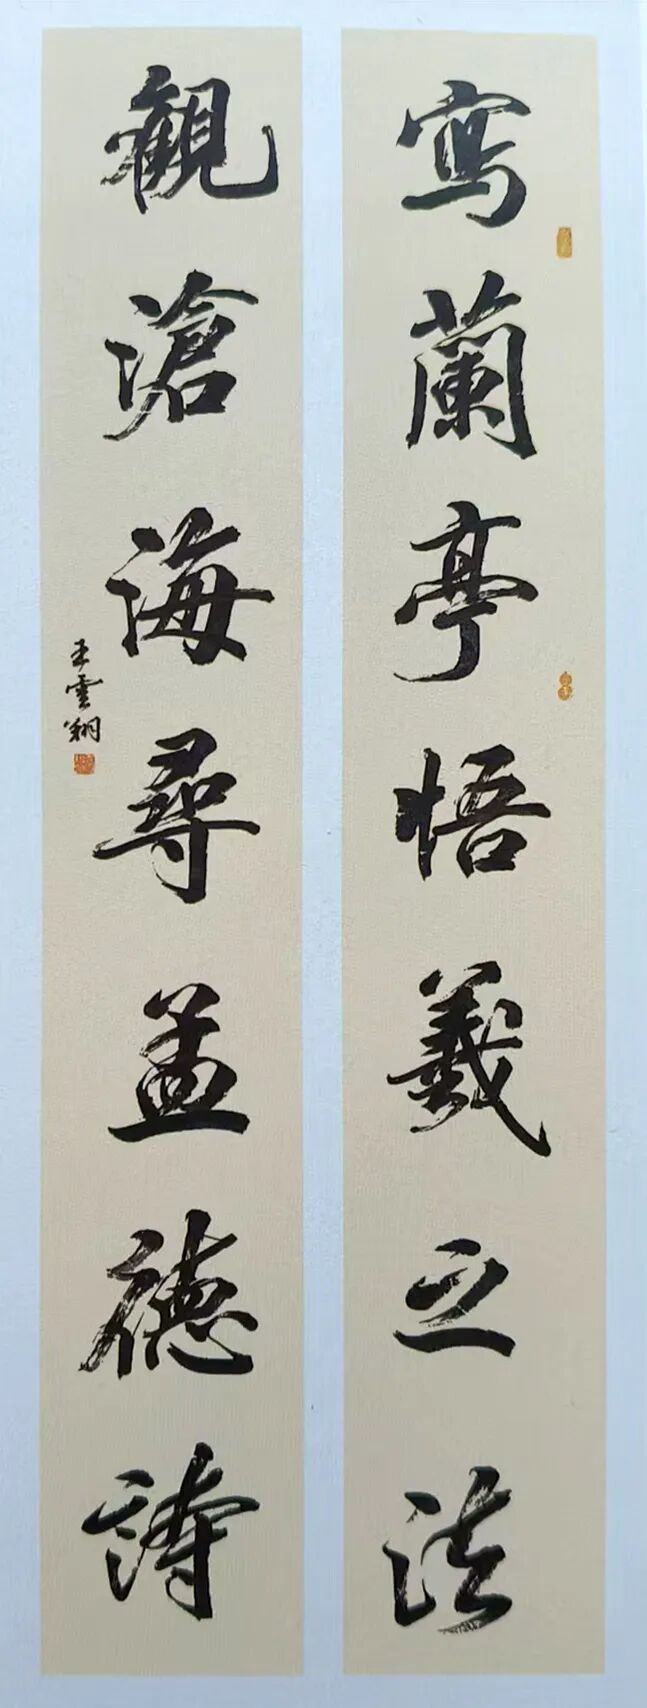 寫蘭亭悟羲之法
觀滄海尋孟德詩
王雲翔